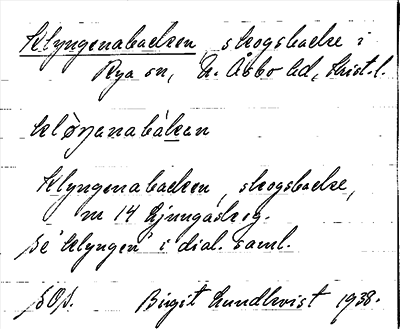 Klyngenabacken, skogsbacke i
Rya sn, N. Åsbo hd, Krist. l.
klöŋanabákan
Klyngenabacken, skogsbacke,
m 14 Ljungaskog.
Se 'klyngen' i dial. saml.
SOS. Birgit Lundkvist 1938.